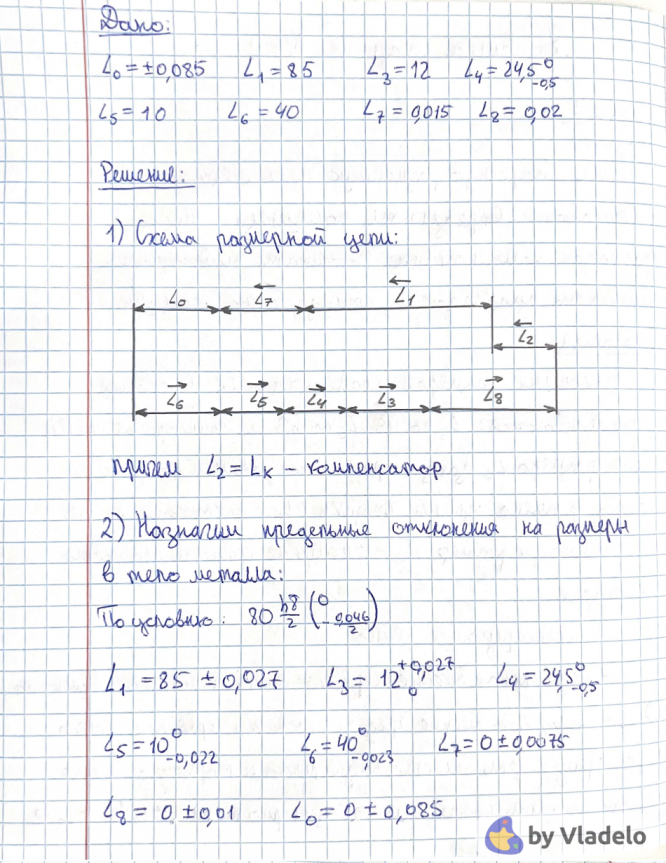 Дано:
L₀ = ±0,085 L₁ = 85 L₃ = 12 L₄ = 24,5⁰₋₀,₅
L₅ = 10 L₆ = 40 L₇ = 0,015 L₈ = 0,02
Решение:
1) Схема размерной цепи:
L₀ ←L₇ ←L₁
←L₂
→L₆ →L₅ →L₄ →L₃ →L₈
примем L₂ = Lк – компенсатор
2) Назначим предельные отклонения на размеры
в тело металла:
По условию: 80 h8/2 (0 -0,046/2)
L₁ = 85 ± 0,027 L₃ = 12 +0,027 0 L₄ = 24,5 0 -0,5
L₅ = 10 0 -0,022 L₆ = 40 0 -0,023 L₇ = 0 ± 0,0075
L₈ = 0 ± 0,01 L₀ = 0 ± 0,085
by Vladelo